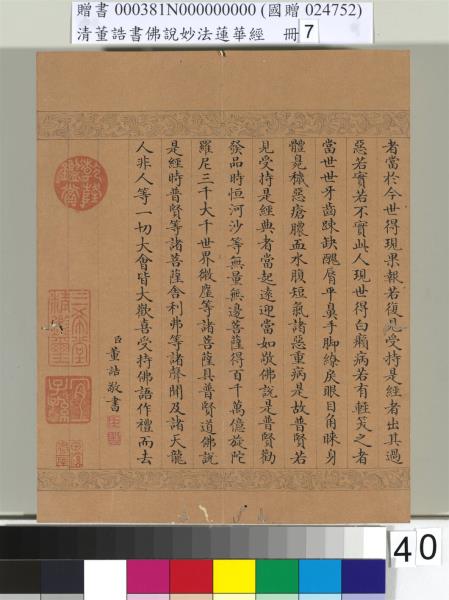 贈書 000381N000000000 (國贈 024752)
清董誥書佛說妙法蓮華經 冊 7
者當於今世得現果報若復見受持是經者出其過
惡若實若不實此人現世得白癩病若有輕笑之者
當世世牙齒踈缺醜脣平鼻手脚繚戾眼目角睞身
體臭穢惡瘡膿血水腹短氣諸惡重病是故普賢若
見受持是經典者當起遠迎當如敬佛說是普賢勸
發品時恒河沙等無量無邊菩薩得百千萬億旋陀
羅尼三千大千世界微塵等諸菩薩具普賢道佛說
是經時普賢等諸菩薩舍利弗等諸聲聞及諸天龍
人非人等一切大會皆大歡喜受持佛語作禮而去
臣董誥敬書
乾隆鑑賞
三希堂精鑑璽
宜子孫
40